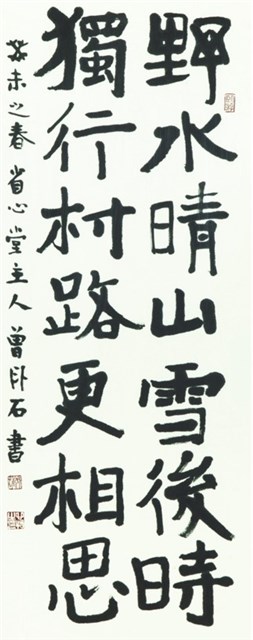 野水晴山雪後時
獨行村路更相思
癸未之春省心堂主人曾卧石書